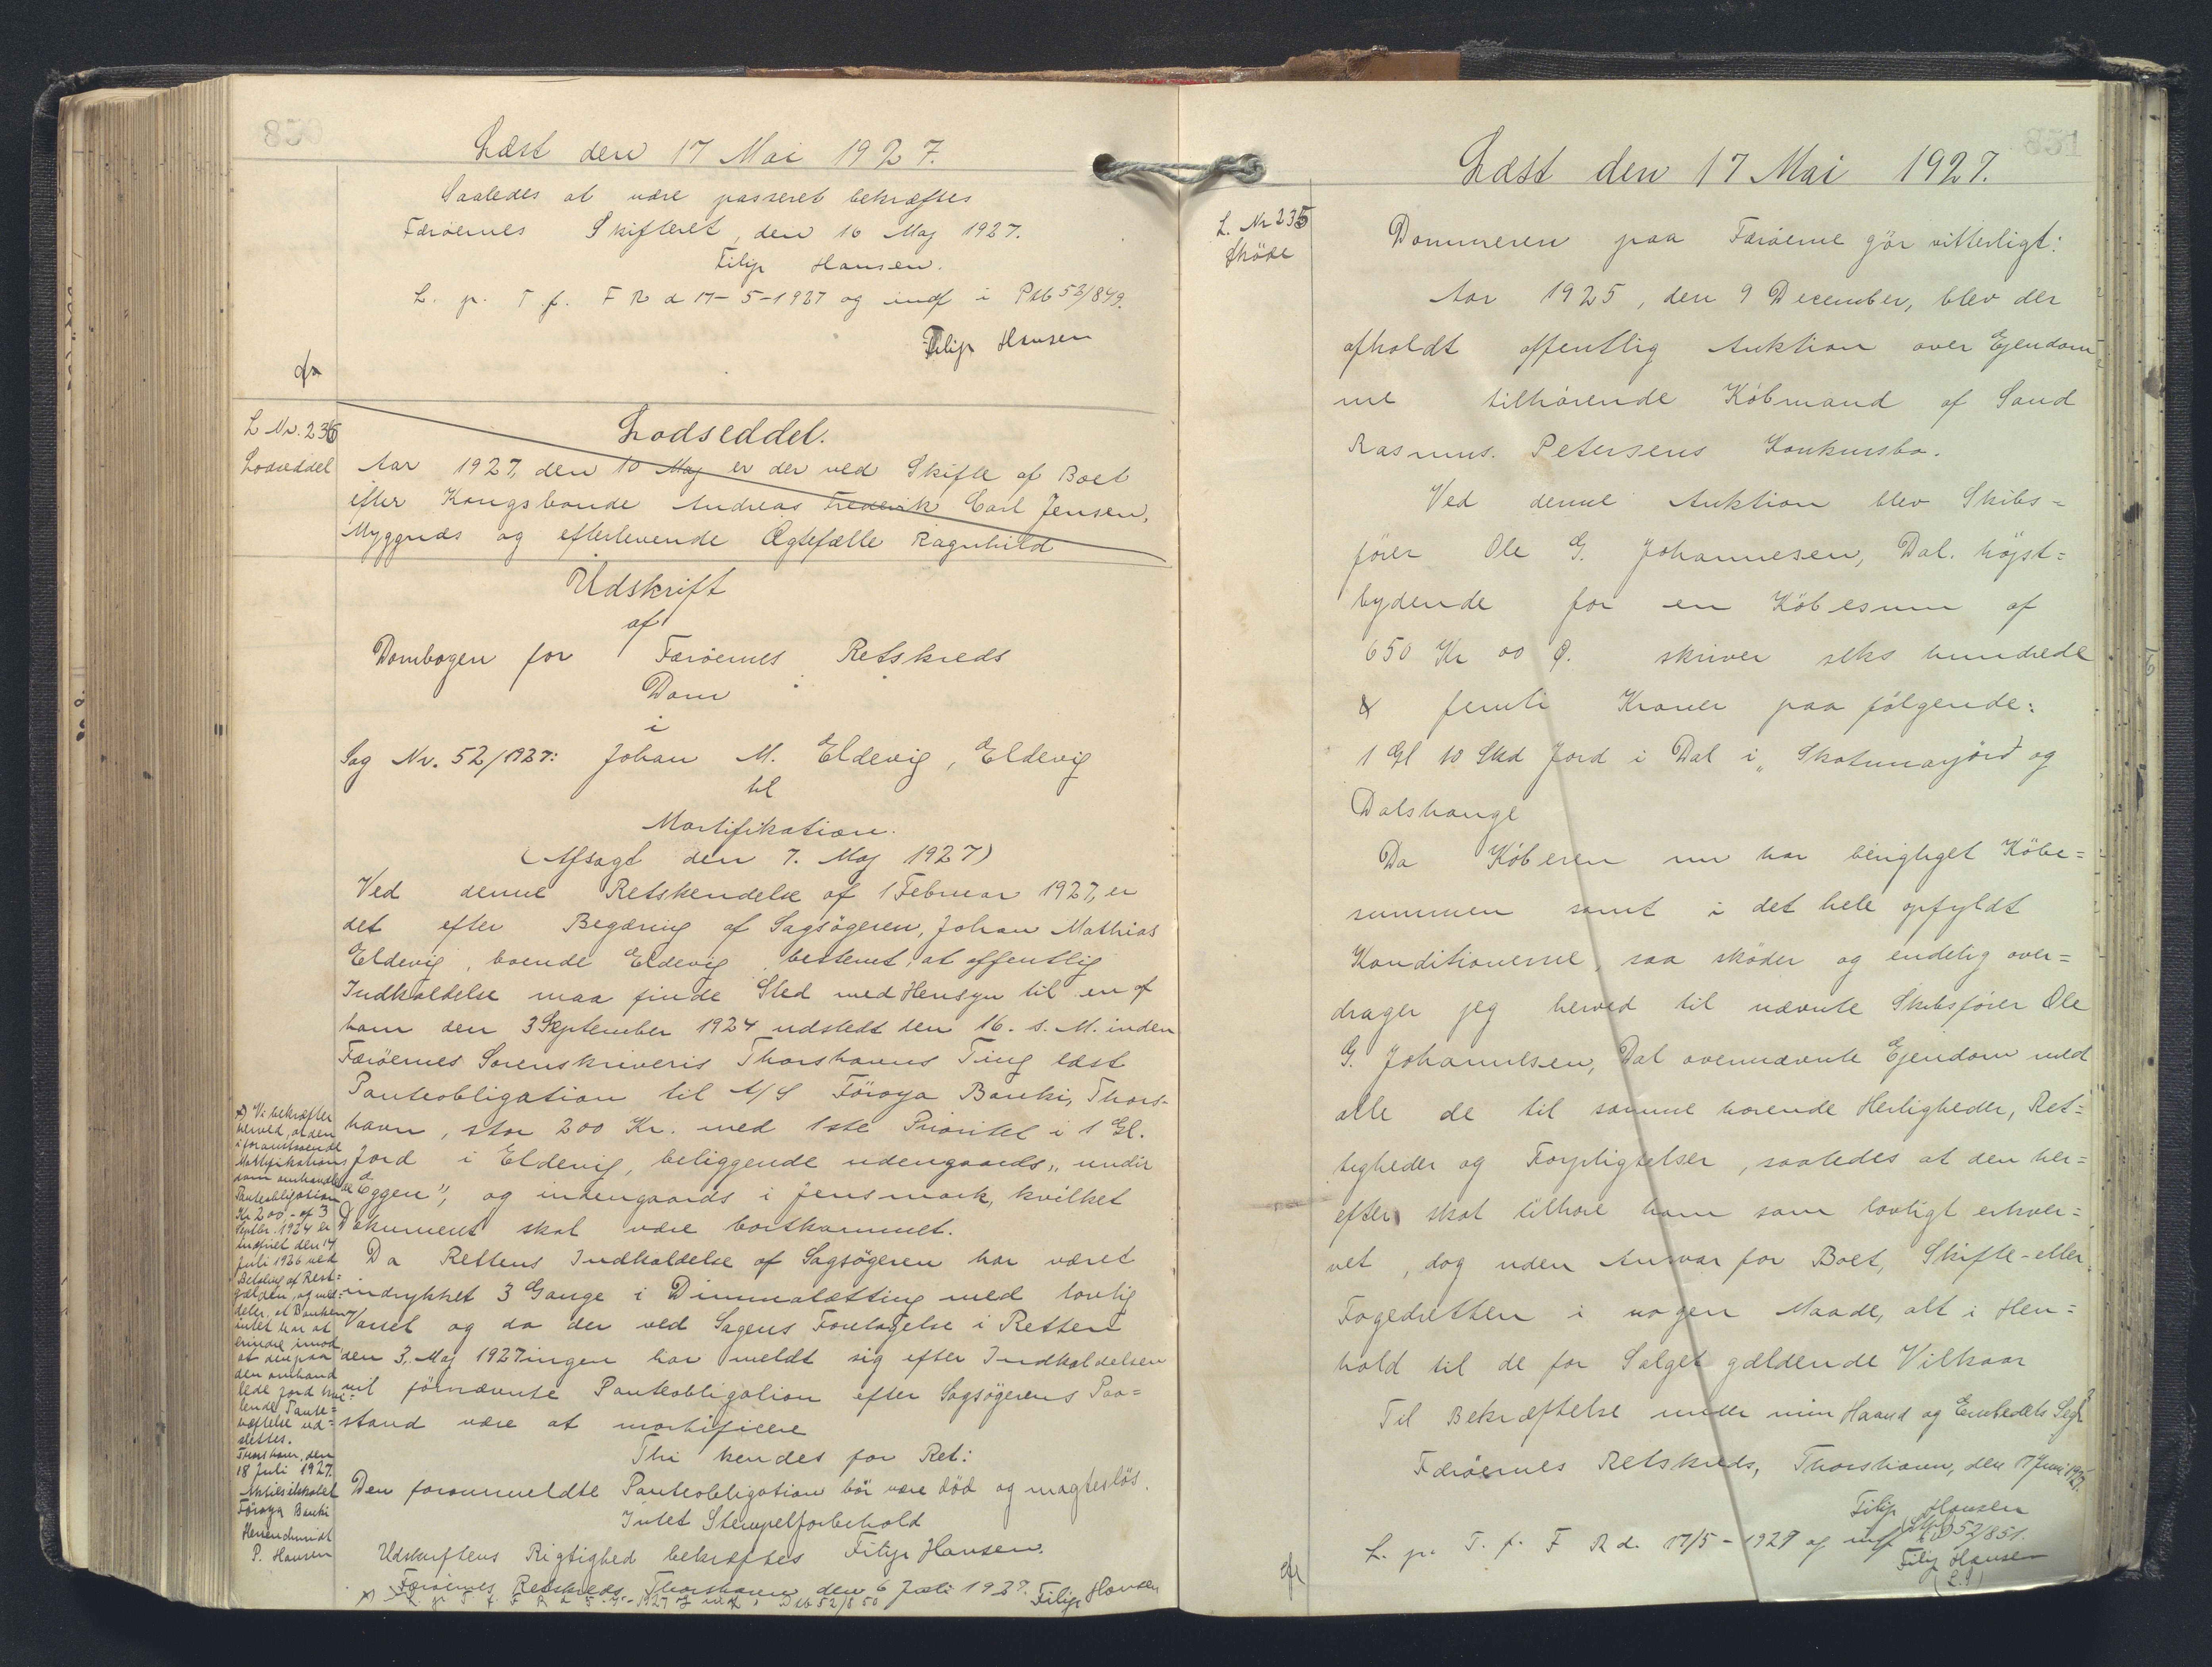 Læst den 17 Mai 1927.
Saaledes at være passeret bekræftes
Færöernes Skifteret, den 16 Maj 1927.
Filip Hansen.
L. p. T. f. F R d 17-5-1927 og indf i Pkb 52/849.
Filip Hansen
L Nr. 236
Lodseddel
Lodseddel.
Aar 1927, den 10 Maj er der ved Skifte af Boet
efter Kongsbonde Andreas Frederik Carl Jensen,
Myggnæs og efterlevende Ægtefælle Ragnhild
Udskrift
af
Dombogen for Færöernes Retskreds
Dom
i
Sag Nr. 52/1927: Johan M. Eldevig, Eldevig
til
Mortifikation.
(Afsagt den 7. Maj 1927)
Ved denne Retskendelse af 1 Februar 1927, er
det efter Begæring af Sagsögeren, Johan Mathias
Eldevig, boende Eldevig bestemt, at offentlig
Indkaldelse maa finde Sted med Hensyn til en af
ham den 3 September 1924 udstedt den 16. s. M. inden
Færöernes Sorenskriveris Thorshavns Ting læst
Panteobligation til A/S Föroya Banki, Thors-
havn, stor 200 Kr. med 1ste Prioritet i 1 Gl.
Jord i Eldevig, beliggende udengaards „under
Eggen", og indengaards i Jensmark, hvilket
Dokument skal være bortkommet.
Da Rettens Indkaldelse af Sagsögeren har været
indrykket 3 Gange i Dimmalætting med lovlig
Varsel og da der ved Sagens Foretagelse i Retten
den 3. Maj 1927 ingen har meldt sig efter Indkaldelsen
vil förnævnte Panteobligation efter Sagsögerens Paa=
stand være at mortificere
Thi kendes for Ret:
Den forommeldte Panteobligation bör være död og magteslös.
Intet Stempelforbehold
Udskriftens Rigtighed bekræftes Filip Hansen.
x) Færöernes Retskreds, Thorshavn den 6 Juli 1927. Filip Hansen
L. p. T. f. F R d 17-5-1927 og indf i Pkb 52/850
x) Vi bekræfter
herved, at den
i foranstaaende
Mortifikations
dom omhandlede
Panteobligation
Kr 200- af 3
Septbr. 1924 er
indfriet den 14
Juli 1926 ved
Betaling af Rest=
gælden, og med=
deler, at Banken
intet har at
erindre imod,
at den paa
den omhand
lede Jord hvi=
lende Pante=
hæftelse ud=
slettes.
Thorshavn, den
18 Juli 1927.
Aktieselskabet
Föroya Banki
P. Hansen
Læst den 17 Mai 1927.
L. Nr 235
Sköde
Dommeren paa Færöerne gör vitterligt:
Aar 1925, den 9 December, blev der
afholdt offentlig Auktion over Ejendom
me tilhörende Köbmand af Sand
Rasmus Petersens Konkursbo.
Ved denne Auktion blev Skibs=
förer Ole G. Johannesen, Dal. höjst=
bydende for en Köbesum af
650 Kr 00 Ø. skriver seks hundrede
& femti Kroner paa fölgende:
1 Gl 10 Skd Jord i Dal i „Skotunarjörd og
Dalshauge
Da Köberen nu har berigtiget Köbe=
summen samt i det hele opfyldt
Konditionerne, saa sköder og endelig over=
drager jeg herved til nævnte Skibsförer Ole
G. Johannesen, Dal ovennævnte Ejendom med
alle de til samme hørende Herligheder, Ret=
tigheder og Forpligtelser, saaledes at den her=
efter skal tilhøre ham som lovligt erhver=
vet, dog uden Ansvar for Boet, Skifte- eller
Fogedretten i nogen Maade, alt i Hen=
hold til de for Salget gældende Vilkaar
Til Bekræftelse under min Haand og Embedets Segl
Færöernes Retskreds, Thorshavn, den 7 Juni 1927.
Filip Hansen
L. p. T. f. F R d. 17/5-1927 og indf. Skb 52/851.
Filip Hansen
(L.S)